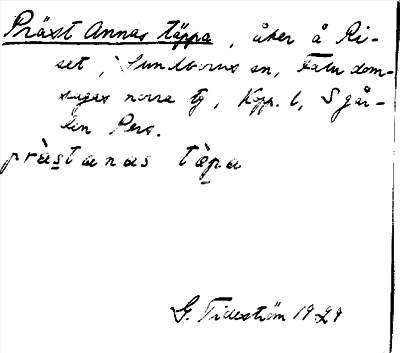 Präst Annas täppa, åker å Ri-
set, Sundborns sn, Falu dom-
sagas norra tg, Kopp. l, Sgår-
den Pers.
pràstanas tàpa
G. Tideström 1929